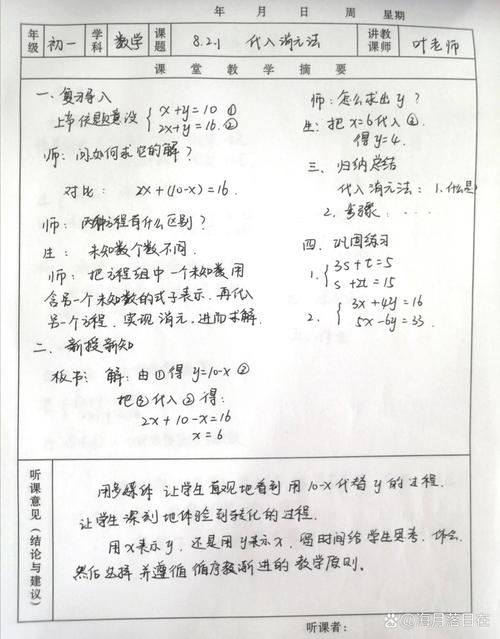 年 月 日 周 星期
年级 初一 学科 数学 课题 8.2.1 代入消元法 讲教课师 叶老师
课堂教学摘要
一、复习导入
上节课题意设 { x+y=10 ①
2x+y=16. ②
师：问如何求它的解？
对比： 2x+(10-x)=16.
师：两种方程有什么区别？
生： 未知数个数不同.
师： 把方程组中一个未知数用
含另一个未知数的式子表示. 再代入
另一个方程. 实现消元, 进而求解.
二、新授新知
板书： 解：由①得 y=10-x ③
把③代入②得：
2x+10-x=16
x=6
师：怎么求出y？
生：把x=6代入③.
得y=4.
三、归纳总结
代入消元法： 1.什么是
2. 步骤： ……
四、巩固练习
1. { 3s+t=5
s+2t=15
2. { 3x+4y=16
5x-6y=33.
听课意见（结论与建议）
用多媒体 让学生直观地看到用10-x代替y的过程.
让学生深刻地体验到转化的过程.
用x表示y. 还是用y表示x. 留时间给学生思考、体会.
然后选择 并遵循循序渐进的教学原则.
听课者：
海月落日在